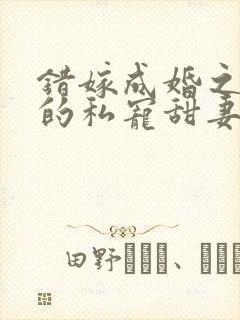 错嫁成婚之
的私宠甜妻
田野